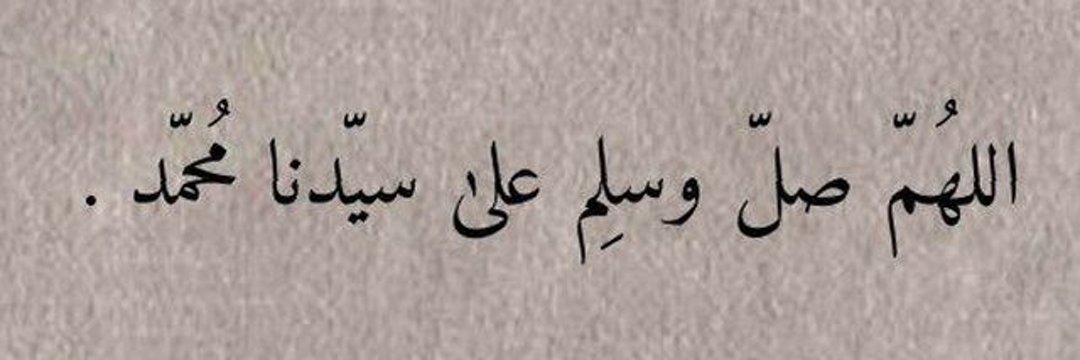 اللهُمّ صلّ وسلِم علىٰ سيّدنا مُحمّد .